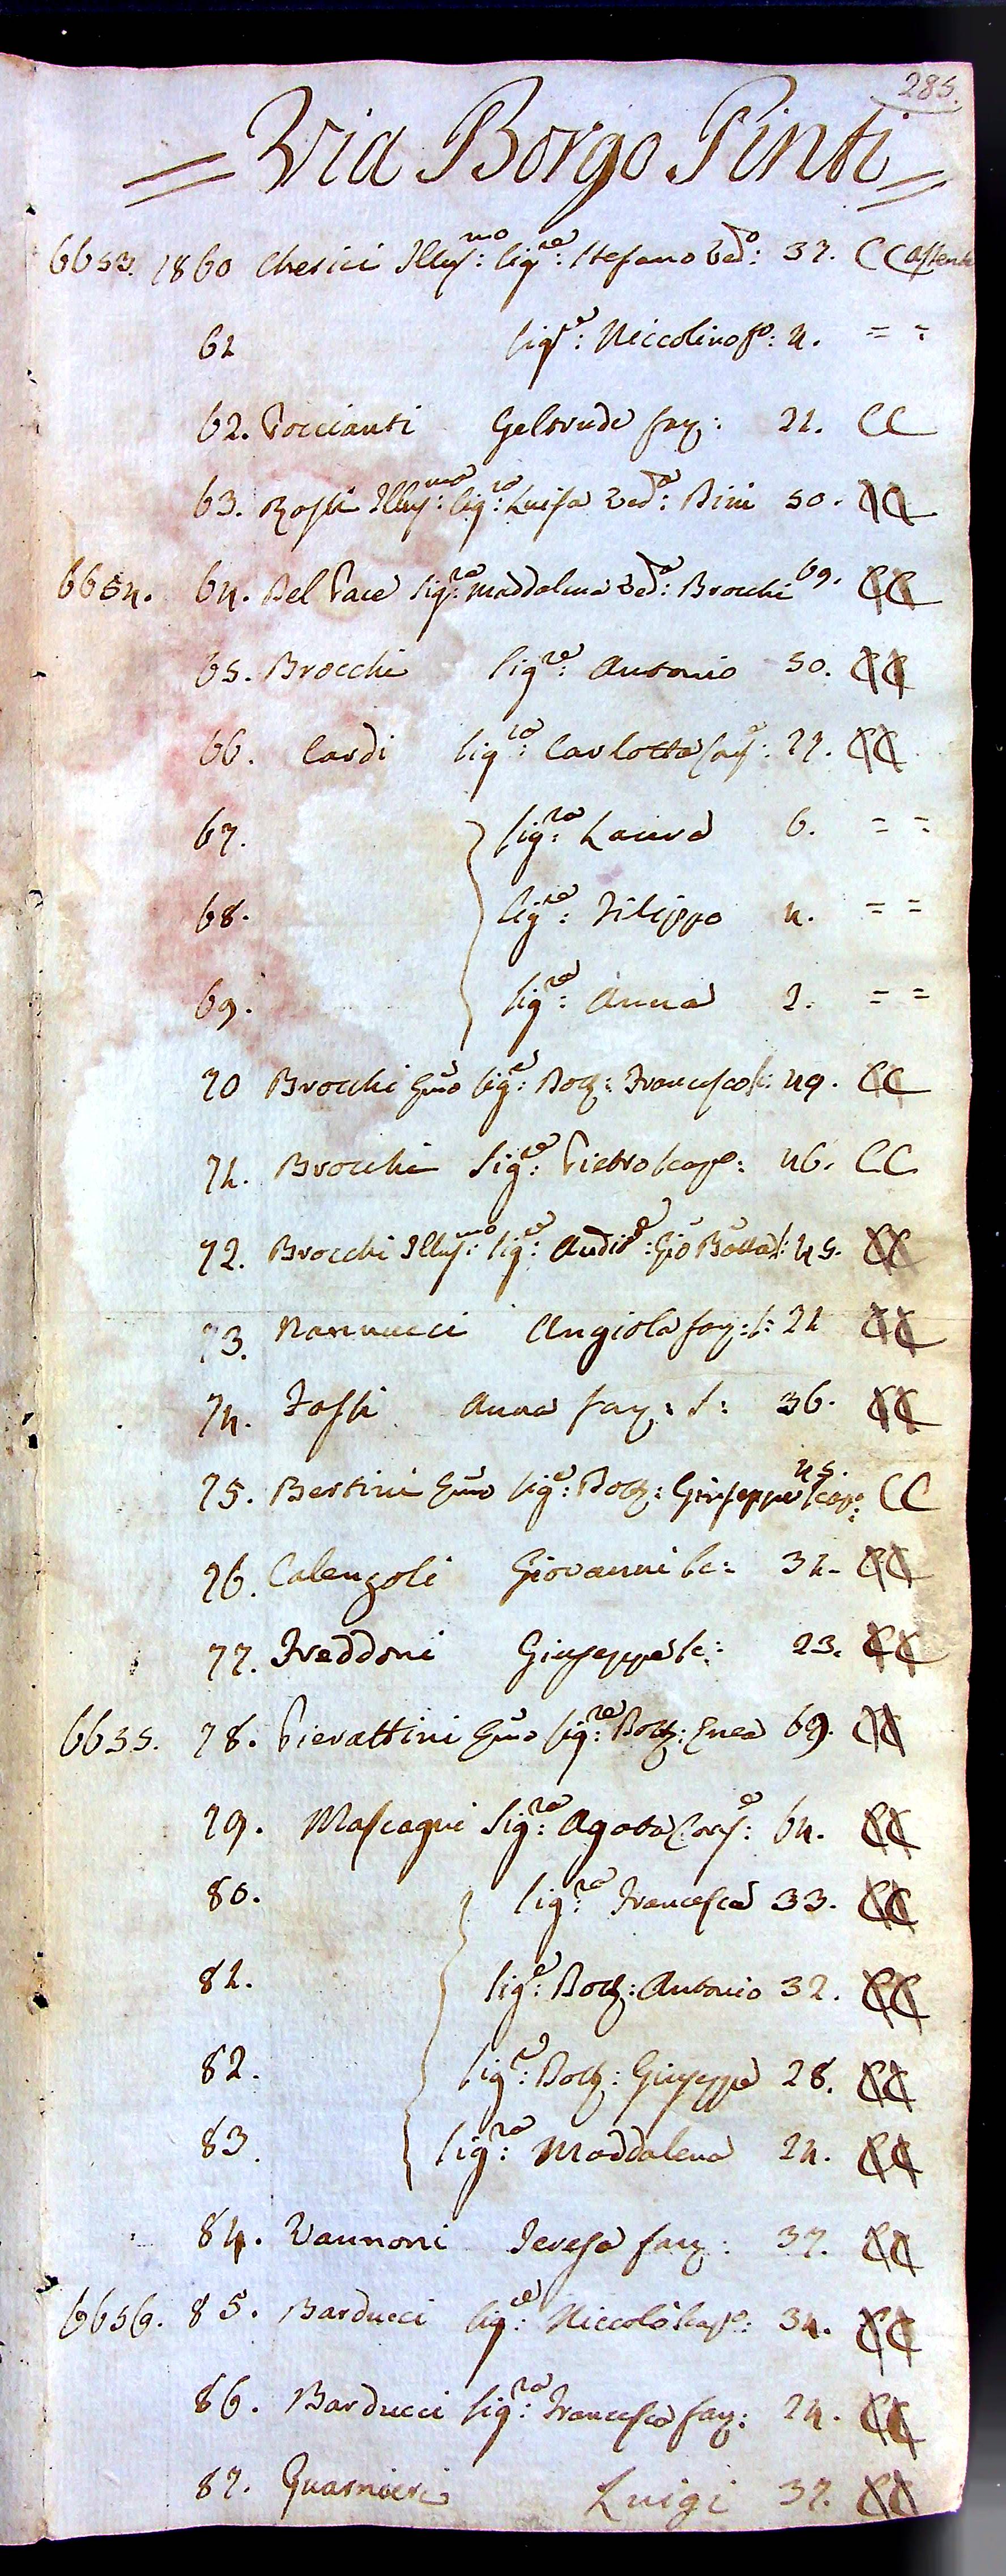 285.
= Via Borgo Pinti =
6653. 1860 Chesici Illus:mo Sigre: Stefano Ved:o 37. CC assente
61 Sigre: Niccolino fo: 4. = =
62. Poccianti Geltrude fan: 21. CC
63. Rossi Illus:ma Sig:ra Luisa Ved:a Bini 50. CC
6654. 64. Del Pace Sig:ra Maddalena Ved:a Brocchi 69. CC
65. Brocchi Sig:re Antonio 50. CC
66. Cardi Sig:ra Carlotta 27. CC
67. Sig:ra Laura 6. = =
68. Sig:re Filippo 4. = =
69. Sig:ra Anna 2. = =
70 Brocchi Sig:e Dott: Francesco s: 49. CC
71. Brocchi Sig:re Pietro scapo: 46. CC
72. Brocchi Illus:mo Sig:e Audie: Gio Batta s: 45. CC
73. Nannucci Angiola fan: s: 21 CC
74. Fossi Anna fan: s: 36. CC
75. Bertini Sig:e Dott: Giuseppe scapo: 45. CC
76. Calenzoli Giovanni sc: 31. CC
77. Freddoni Giuseppe sc: 23. CC
6655. 78. Pierattini Sig:re Dott: Enea 69. CC
79. Mascagni Sig:ra Agata Cons:e 64. CC
80. Sig:ra Francesca 33. CC
81. Sig:e Dott: Antonio 32. CC
82. Sig:e Dott: Giuseppe 28. CC
83. Sig:ra Maddalena 24. CC
84. Vannoni Teresa fan: 37. CC
6656. 85. Barducci Sig:re Niccolò scapo: 34. CC
86. Barducci Sig:ra Francesca fan: 24. CC
87. Guarnieri Luigi 37. CC